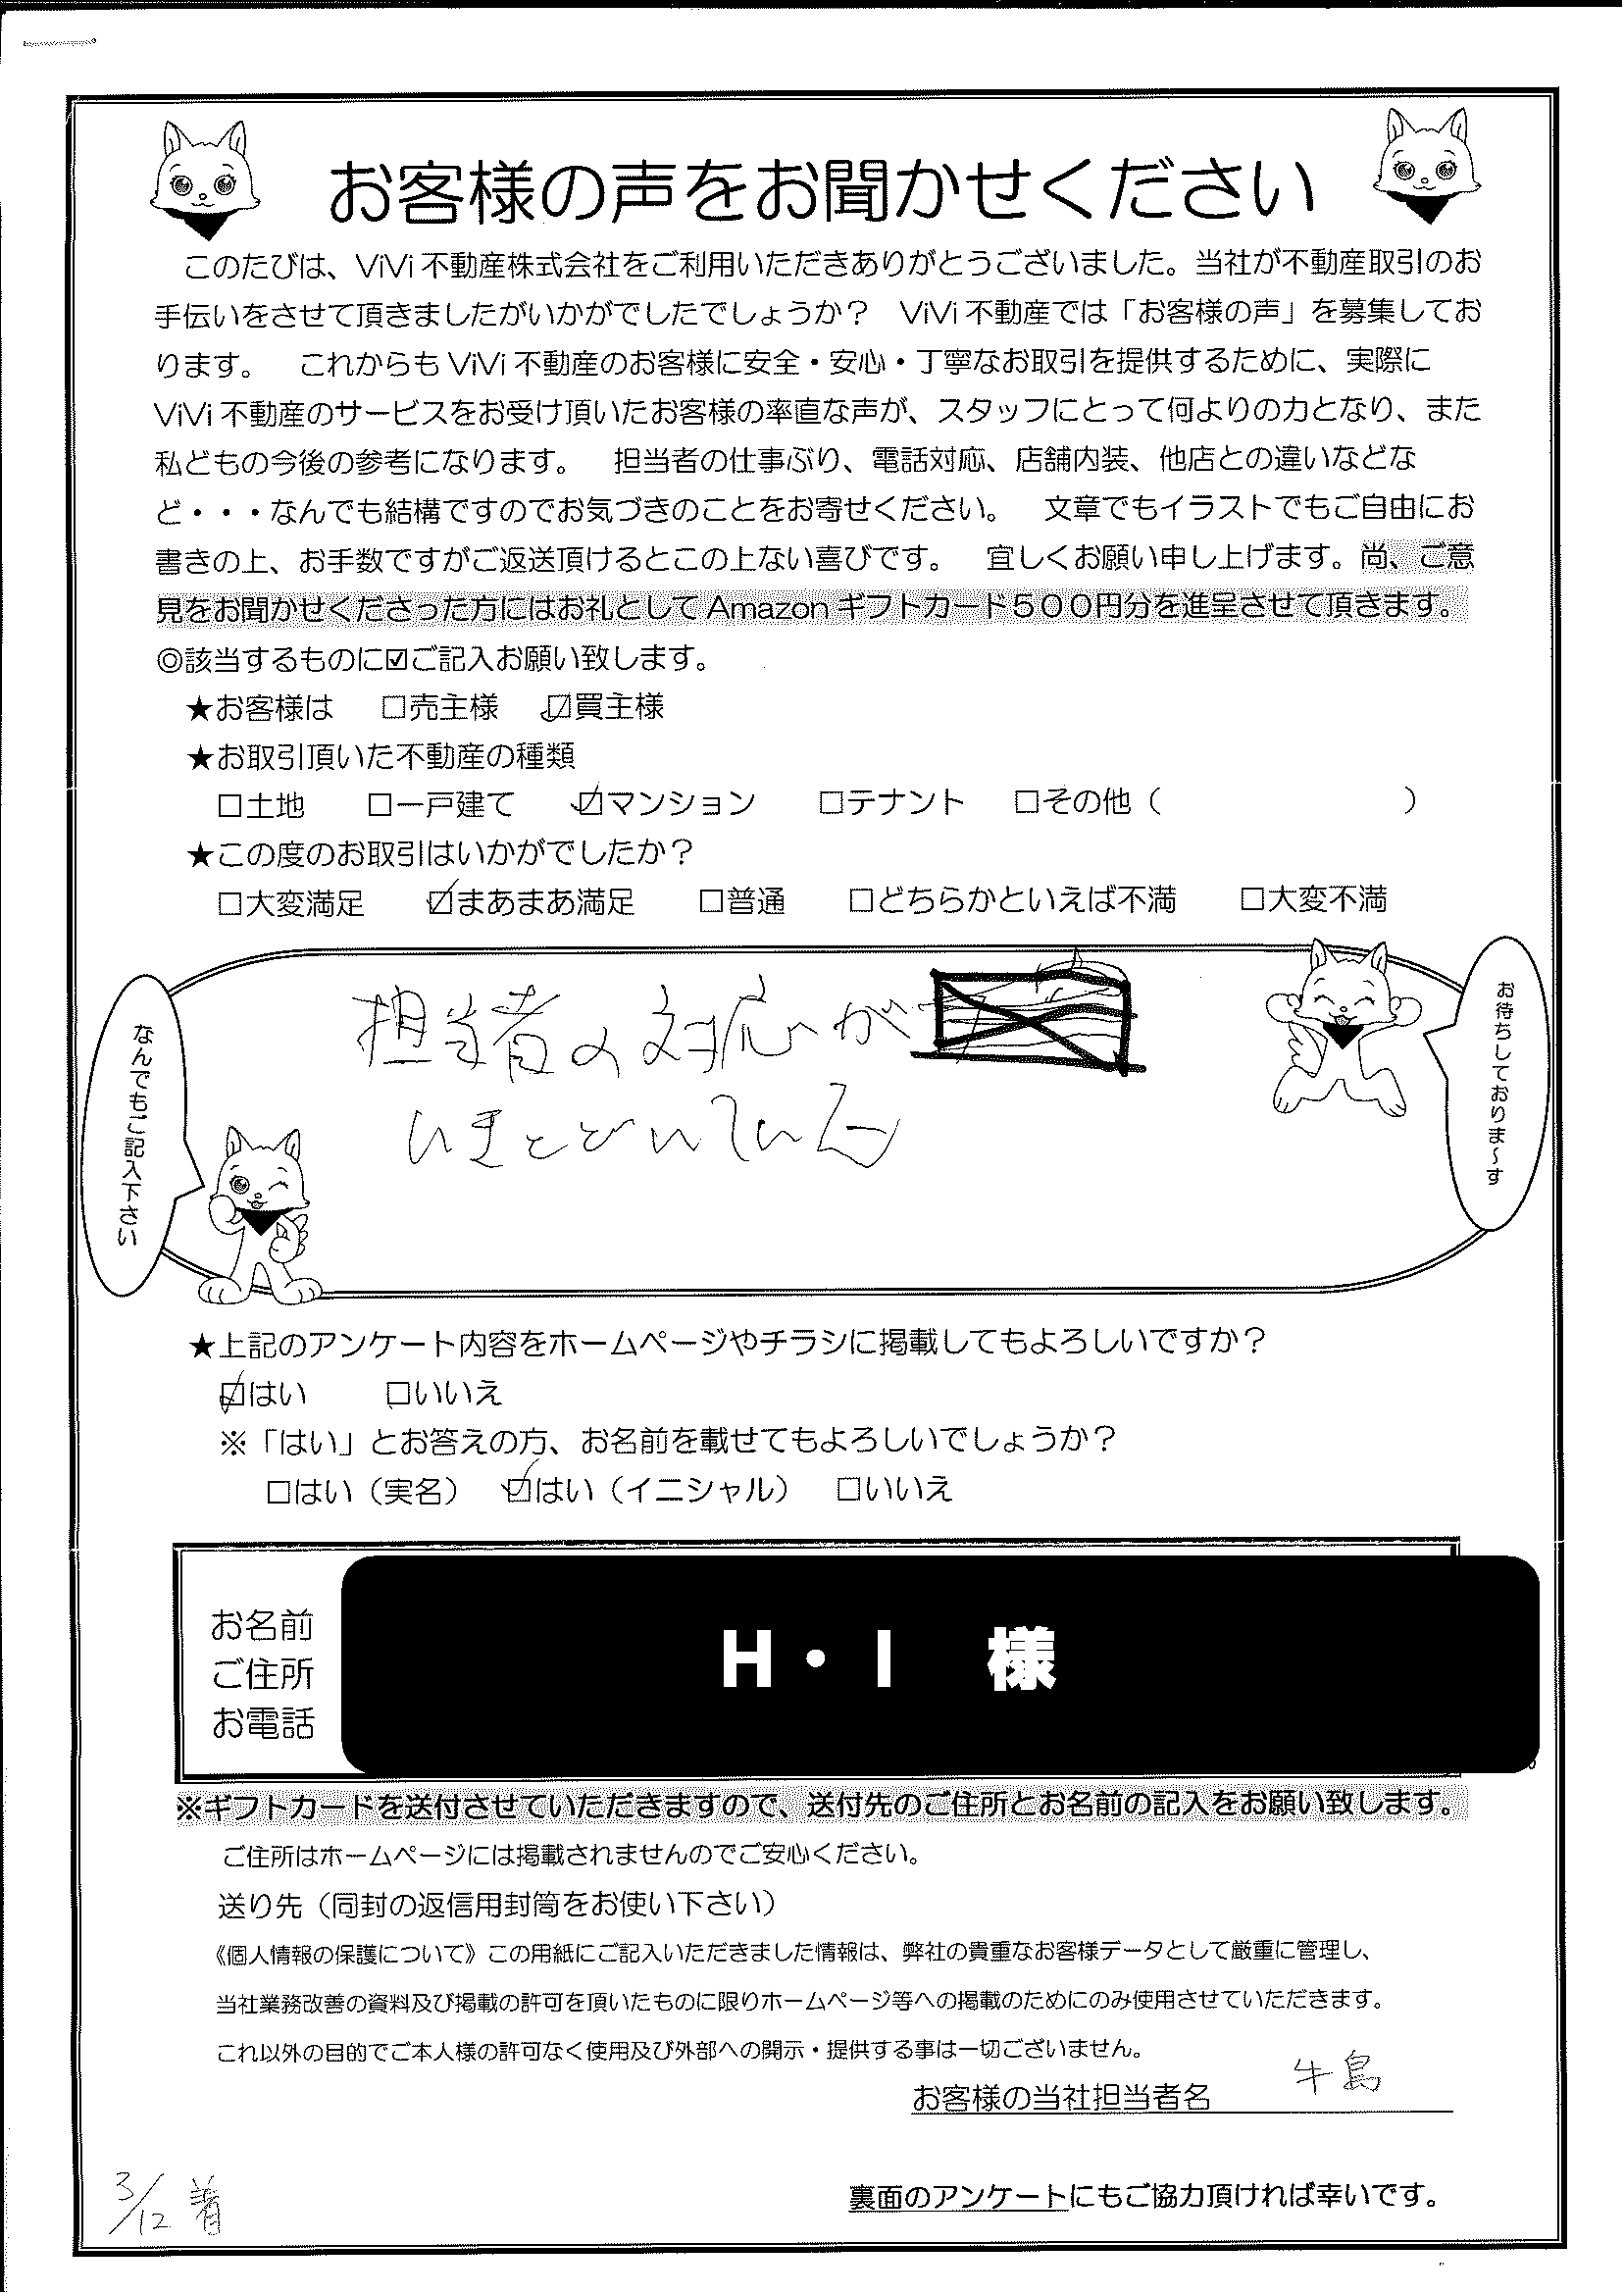 お客様の声をお聞かせください
このたびは、ViVi不動産株式会社をご利用いただきありがとうございました。当社が不動産取引のお
手伝いをさせて頂きましたがいかがでしたでしょうか？　ViVi不動産では「お客様の声」を募集してお
ります。　これからもViVi不動産のお客様に安全・安心・丁寧なお取引を提供するために、実際に
ViVi不動産のサービスをお受け頂いたお客様の率直な声が、スタッフにとって何よりの力となり、また
私どもの今後の参考になります。　担当者の仕事ぶり、電話対応、店舗内装、他店との違いなどな
ど・・・なんでも結構ですのでお気づきのことをお寄せください。　文章でもイラストでもご自由にお
書きの上、お手数ですがご返送頂けるとこの上ない喜びです。　宜しくお願い申し上げます。尚、ご意
見をお聞かせくださった方にはお礼としてAmazonギフトカード５００円分を進呈させて頂きます。
◎該当するものに☑ご記入お願い致します。
★お客様は　□売主様　☑買主様
★お取引頂いた不動産の種類
□土地　□一戸建て　☑マンション　□テナント　□その他（　　　　　　　）
★この度のお取引はいかがでしたか？
□大変満足　☑まあまあ満足　□普通　□どちらかといえば不満　□大変不満
なんでもご記入下さい
お待ちしておりま～す
担当者の対応が
いきとどいている
★上記のアンケート内容をホームページやチラシに掲載してもよろしいですか？
☑はい　□いいえ
※「はい」とお答えの方、お名前を載せてもよろしいでしょうか？
□はい（実名）　☑はい（イニシャル）　□いいえ
お名前
ご住所
お電話
H・I　様
※ギフトカードを送付させていただきますので、送付先のご住所とお名前の記入をお願い致します。
ご住所はホームページには掲載されませんのでご安心ください。
送り先（同封の返信用封筒をお使い下さい）
《個人情報の保護について》この用紙にご記入いただきました情報は、弊社の貴重なお客様データとして厳重に管理し、
当社業務改善の資料及び掲載の許可を頂いたものに限りホームページ等への掲載のためにのみ使用させていただきます。
これ以外の目的でご本人様の許可なく使用及び外部への開示・提供する事は一切ございません。
お客様の当社担当者名　牛島
3/12 着
裏面のアンケートにもご協力頂ければ幸いです。